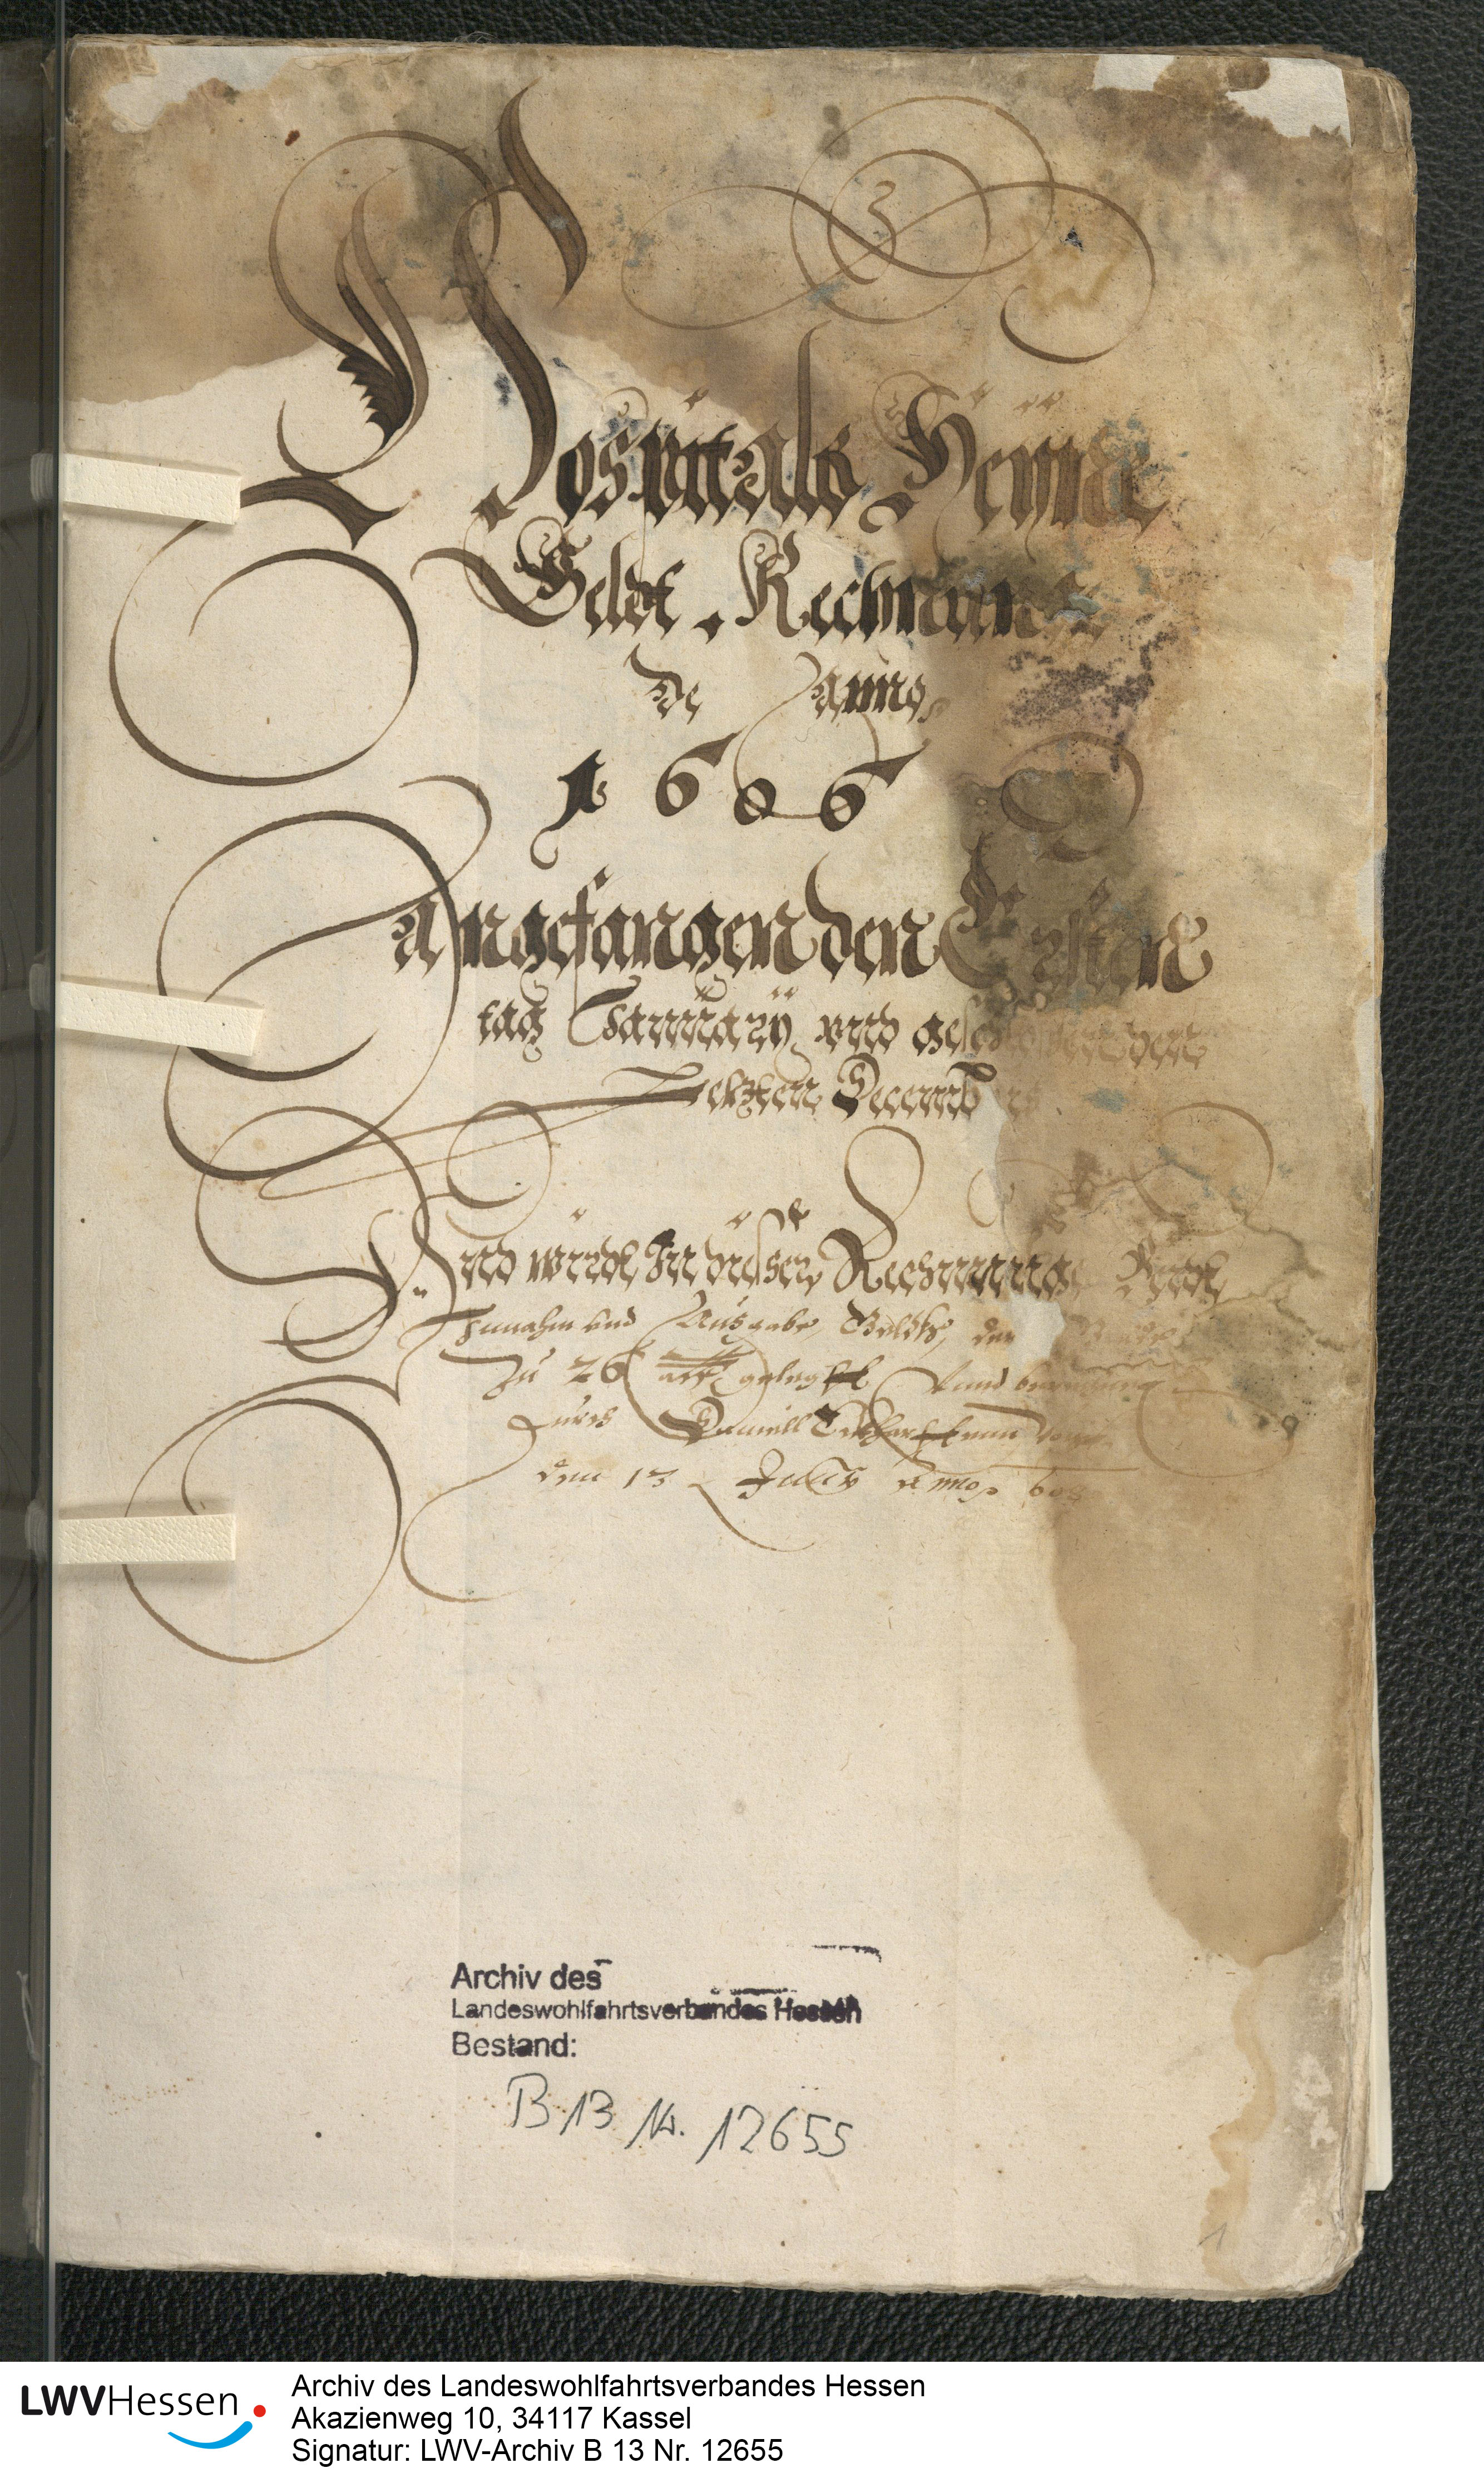 Hospitals Heÿne
Geldt Rechnung
de Anno
1606
Angefangen den Ersten
tag Januarÿ vnd geschlossen den
Letzten Decemb
Vnd wirdt In dieser Rechnunge
Innahm vnd Ausgabe, Geldts, der
Zu 26 alb gelegtt vnnd
durch Daniell
den 13 Julÿ Anno 608
Archiv des
Landeswohlfahrtsverbandes Hessen
Bestand:
B 13 Nr. 12655
1
LWVHessen
Archiv des Landeswohlfahrtsverbandes Hessen
Akazienweg 10, 34117 Kassel
Signatur: LWV-Archiv B 13 Nr. 12655